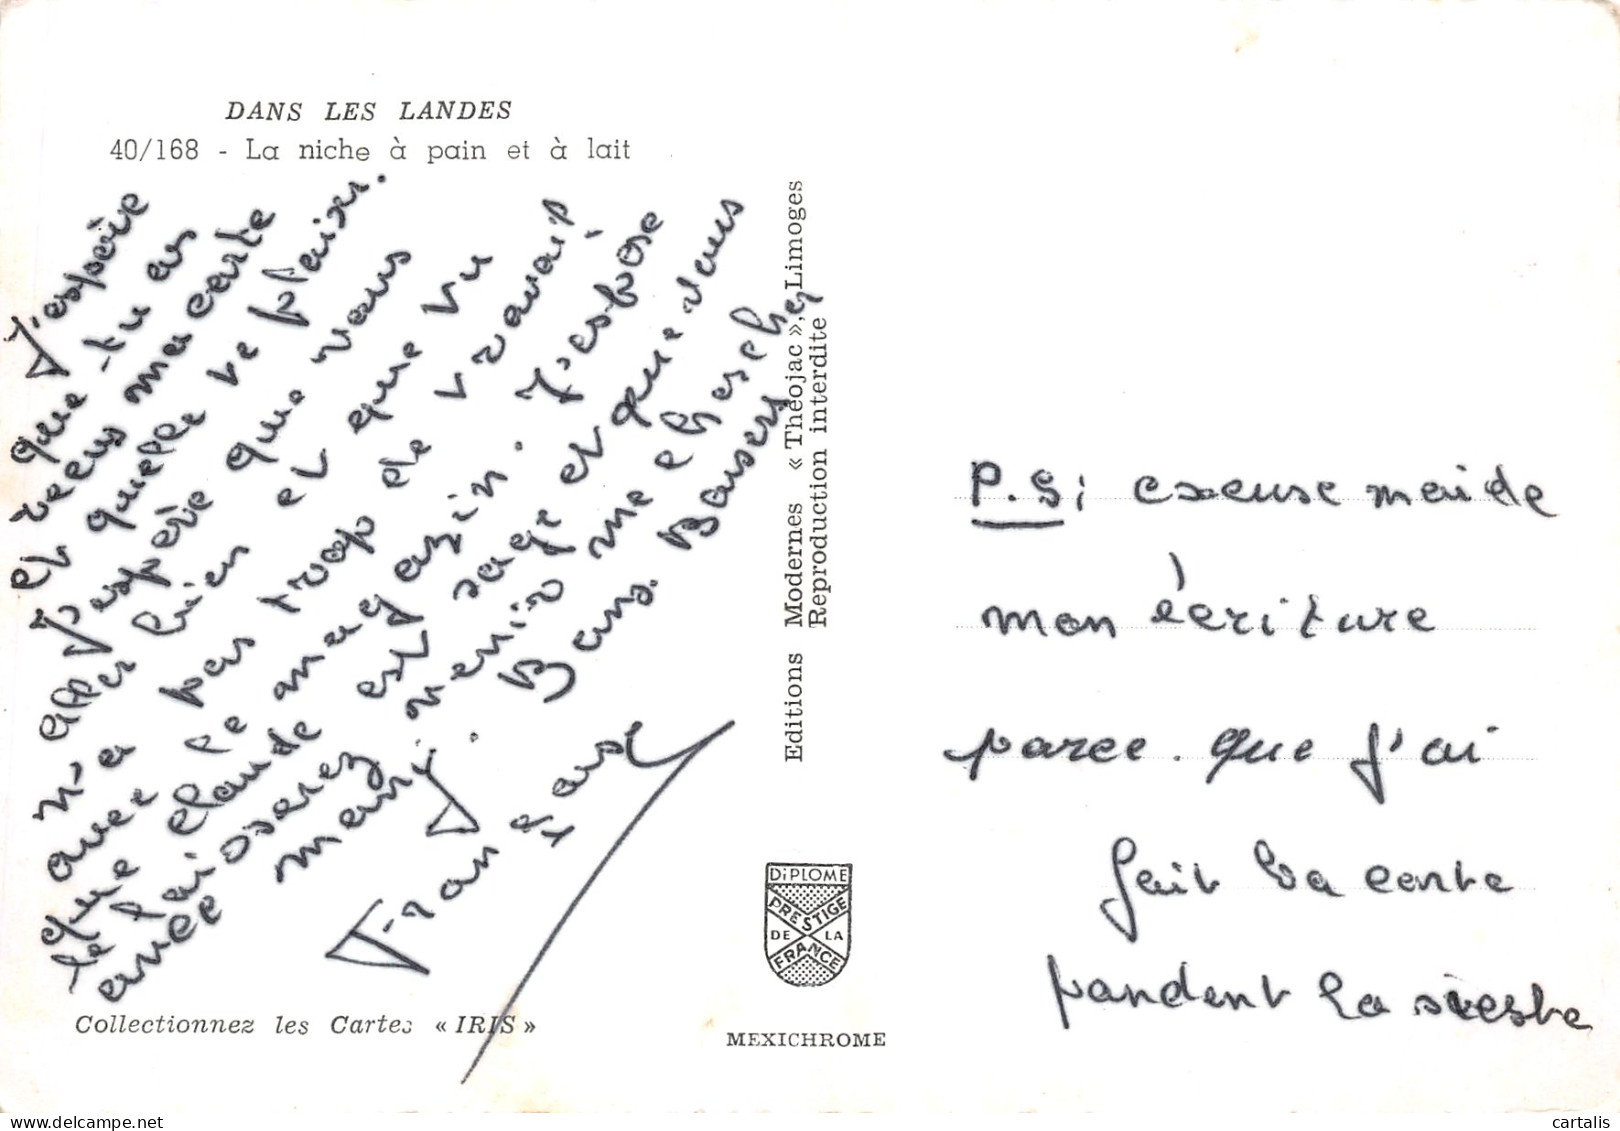 DANS LES LANDES
40/168 - La niche à pain et à lait
J'espère
que tu as
recus ma carte
et quelle te plaiser.
J'espère que vous
aller bien et que vu
n'a pas trop de travaip
avec le magazin. J'espère
que claude est sage et que vous
le laisserez venir me chercher
avec mami.
Bons Basers
Françoise
Collectionnez les Cartes « IRIS »
Editions Modernes « Théojac », Limoges
Reproduction interdite
DiPLOME
PRESTIGE
DE LA
FRANCE
MEXICHROME
P.S; excuse maide
mon écriture
parce. que j'ai
fait la carte
pandent la sieste
cartalis.com